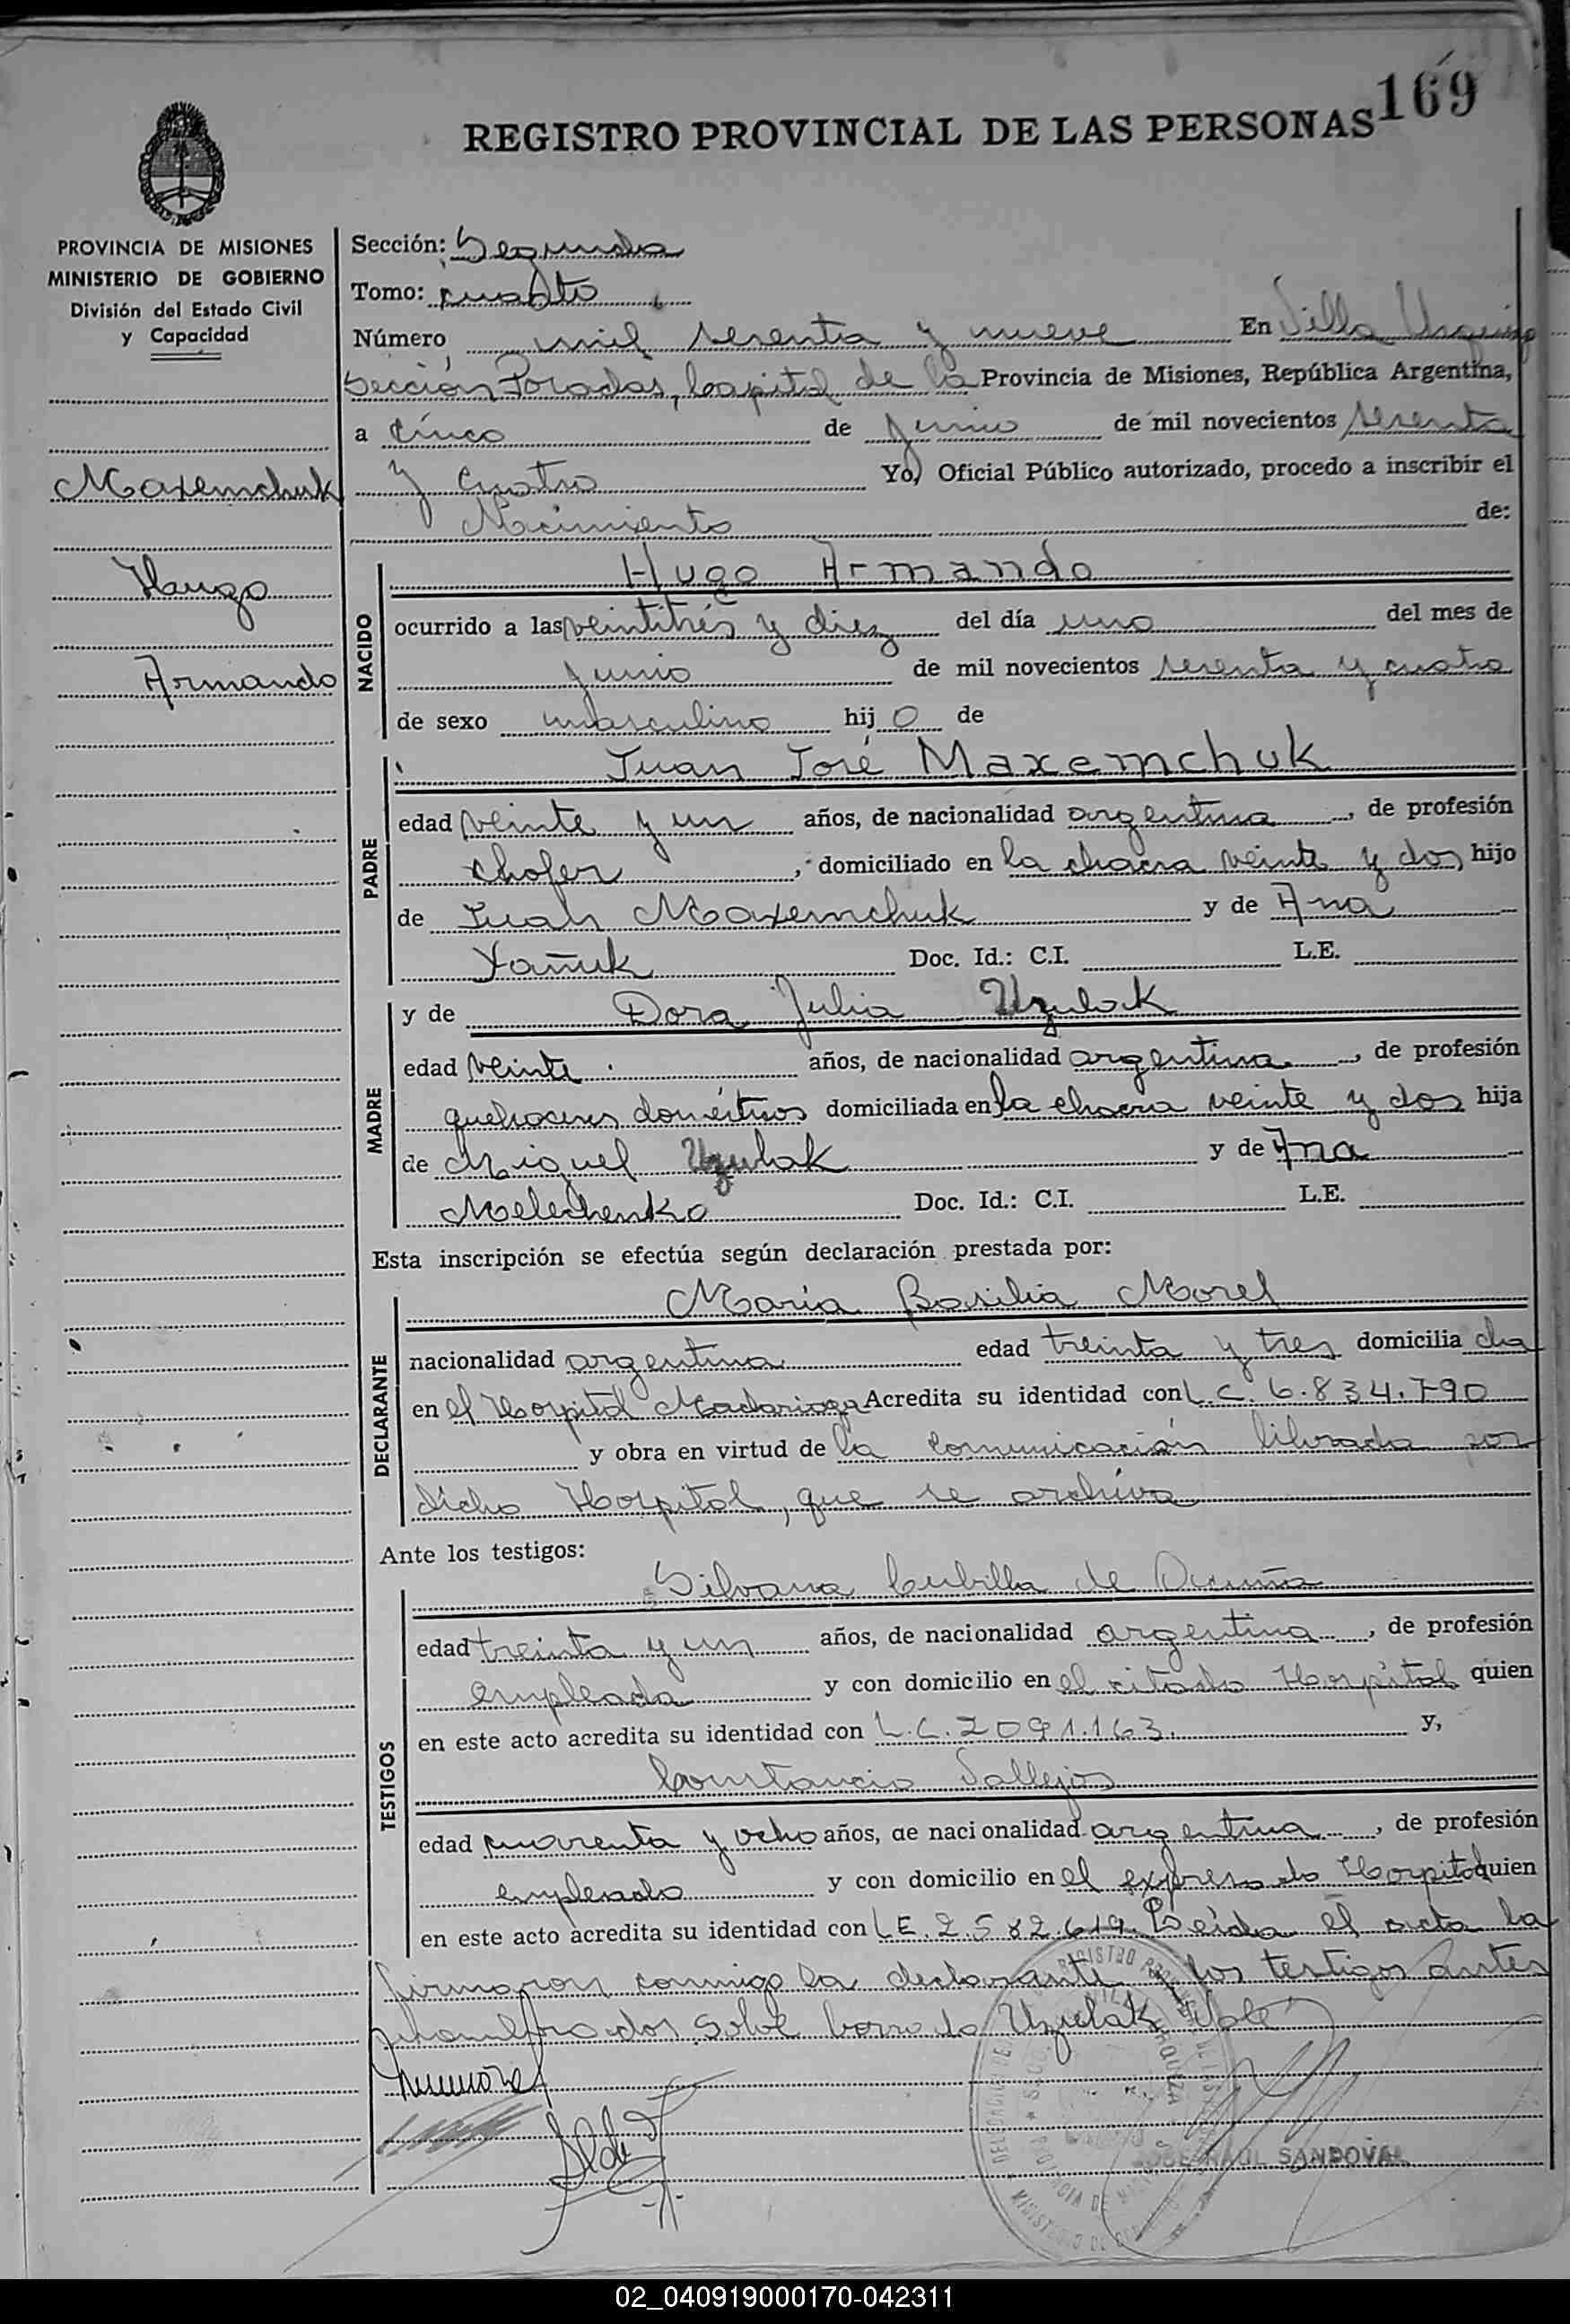 169
REGISTRO PROVINCIAL DE LAS PERSONAS
PROVINCIA DE MISIONES
MINISTERIO DE GOBIERNO
División del Estado Civil
y Capacidad
Maxemchuk
Hugo
Armando
Sección: Segunda
Tomo: cuarto
Número mil sesenta y nueve En Villa Urquiza
Sección Posadas, Capital de la Provincia de Misiones, República Argentina,
a cinco de junio de mil novecientos sesenta
y cuatro Yo, Oficial Público autorizado, procedo a inscribir el
Nacimiento de:
NACIDO
Hugo Armando
ocurrido a las veintitrés y diez del día uno del mes de
junio de mil novecientos sesenta y cuatro
de sexo masculino hijo de
PADRE
Juan José Maxemchuk
edad veinte y un años, de nacionalidad argentina, de profesión
chofer, domiciliado en la chacra veinte y dos, hijo
de Juan Maxemchuk y de Ana
Yañuk Doc. Id.: C.I. L.E.
MADRE
y de Dora Julia Uzulak
edad veinte años, de nacionalidad argentina, de profesión
quehaceres domésticos domiciliada en la chacra veinte y dos hija
de Miguel Uzulak y de Ana
Melechenko Doc. Id.: C.I. L.E.
Esta inscripción se efectúa según declaración prestada por:
DECLARANTE
María Basilia Morel
nacionalidad argentina edad treinta y tres domiciliada
en el Hospital Madariaga Acredita su identidad con L.C. 6.834.790
y obra en virtud de la comunicación librada por
dicho Hospital, que se archiva
Ante los testigos:
TESTIGOS
Silvana Cubilla de Acuña
edad treinta y un años, de nacionalidad argentina, de profesión
empleada y con domicilio en el citado Hospital quien
en este acto acredita su identidad con L.C. 2091.163. y,
Constancio Vallejos
edad cuarenta y ocho años, de nacionalidad argentina, de profesión
empleado y con domicilio en el expresado Hospital quien
en este acto acredita su identidad con L.E. 2.582.619. Leída el acta la
firmaron conmigo la declarante y los testigos antes
nombrados. Sobre borrado Uzulak Vale
JOSE RAUL SANDOVAL
02_040919000170-042311